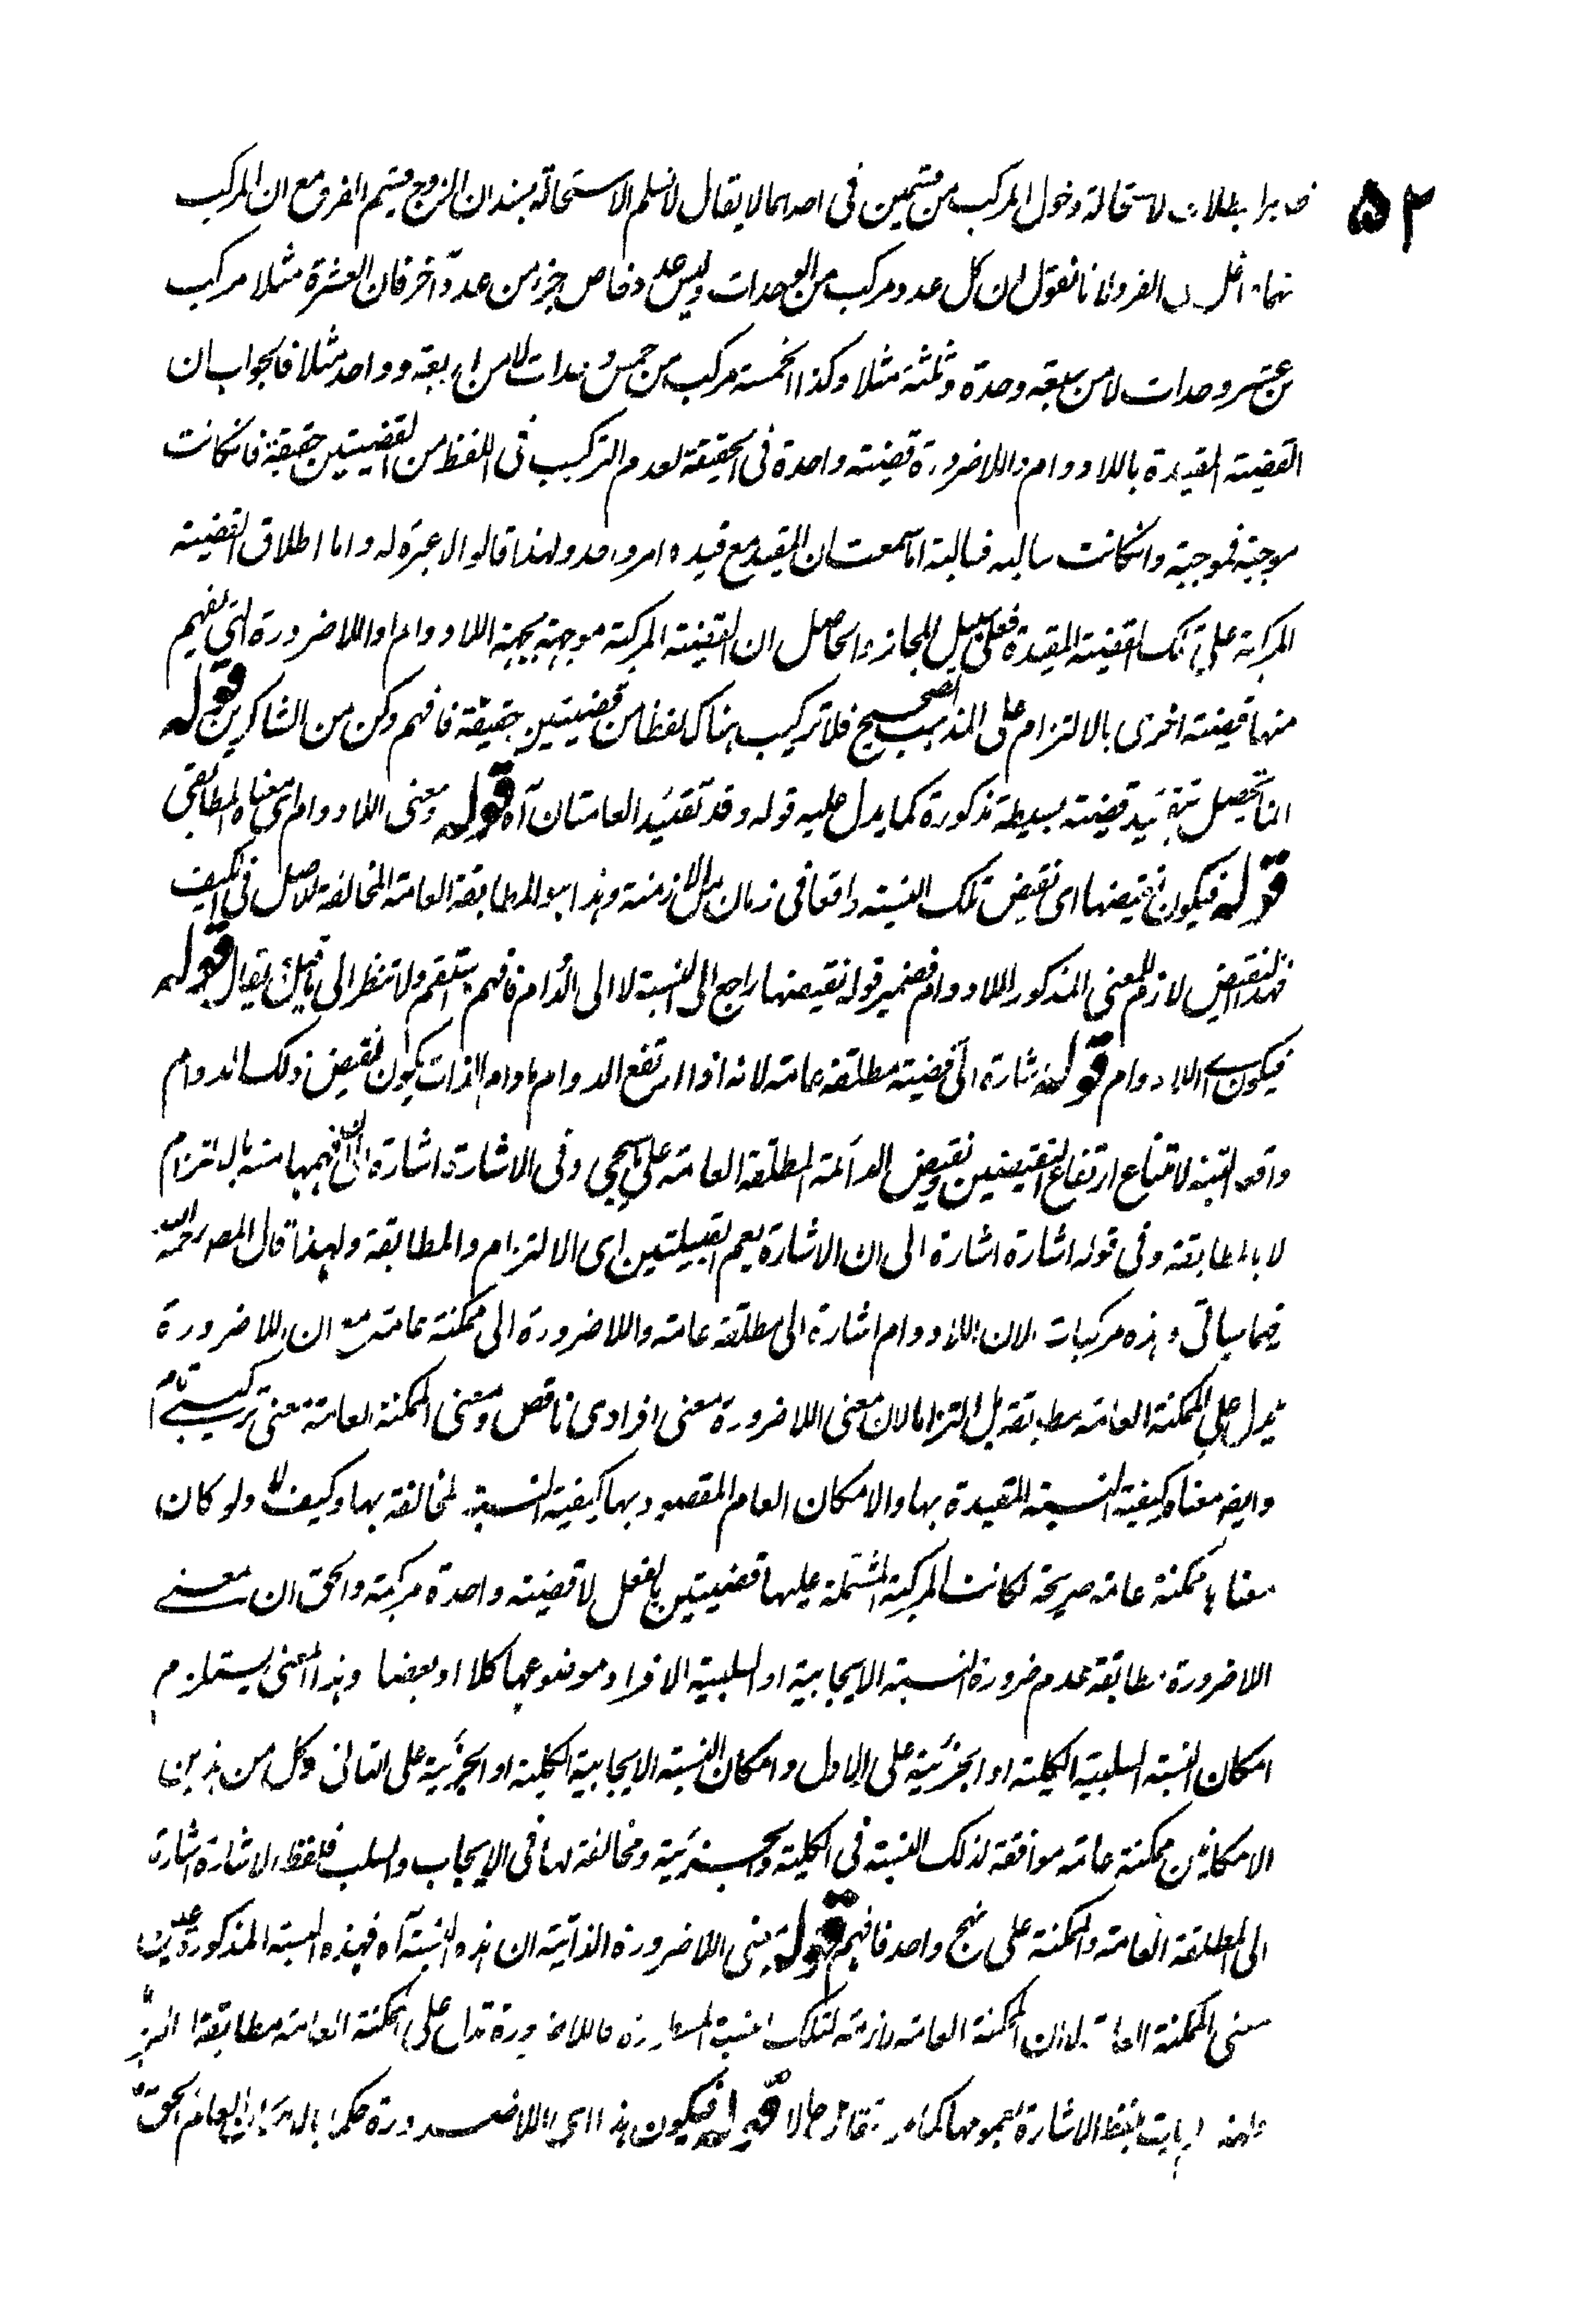 ٥٢
لاستحالة دخول المركب من قسمين فى احدهما لا يقال لا نسلم الاستحالة بسند ان الزوج قسيم الفرد مع ان المركب
لانا نقول ان كل عدد مركب من الوحدات وليس عدد خاص جزء من عدد آخر فان العشرة مثلا مركب
من عشر وحدات لا من سبعة وحدة وثلثة مثلا وكذا الخمسة مركب من خمس وحدات لا من اربعة وواحد مثلا فالجواب ان
القضية المقيدة باللادوام واللاضرورة قضية واحدة فى الحقيقة لعدم التركيب فى اللفظ من القضيتين حقيقة فانكانت
موجبة فموجبة وانكانت سالبة فسالبة اما سمعت ان المقيد مع قيده امر واحد ولهذا قالوا لا عبرة له واما اطلاق القضية
المركبة على تلك القضية المقيدة فعلى سبيل المجاز والحاصل ان القضية المركبة موجهة بجهة اللادوام او اللاضرورة التى يفهم
منها قضية اخرى بالالتزام على المذهب الصحيح فلا تركيب هناك لفظا من قضيتين حقيقة فافهم وكن من الشاكرين قوله
انما تحصل بتقييد قضية بسيطة مذكورة كما يدل عليه قوله وقد تقيد العامتان آه قوله ومعنى اللادوام اى معناه المطابقى
قوله فيكون نقيضها اى نقيض تلك النسبة واقعا فى زمان من الازمنة وهذا هو المطابقة العامة المخالفة للاصل فى الكيف
فهذا النقيض لازم للمعنى المذكور اللادوام فضمير قوله نقيضها راجع الى النسبة لا الى الدوام فافهم واستقم ولا تنظر الى ما قيل يقال قوله
فيكون اللادوام قوله اشارة الى قضية مطلقة عامة لانه اذا ارتفع الدوام مادام الذات يكون نقيض ذلك الدوام
واقعا البتة لامتناع ارتفاع النقيضين ونقيض الدائمة المطلقة العامة على ما سيجئ وفى الاشارة اشارة الى ان فهمها منه بالالتزام
لا بالمطابقة وفى قوله اشارة اشارة الى ان الاشارة يعم القبيلتين اى الالتزام والمطابقة ولهذا قال المصـ رحمه الله
فيما سيأتى وهذه مركبات لان اللادوام اشارة الى مطلقة عامة واللاضرورة الى ممكنة عامة مع ان اللاضرورة
يدل على الممكنة العامة مطابقة بل التزاما لان معنى اللاضرورة معنى افرادى ناقص ومعنى الممكنة العامة معنى تركيبى تام
وايضا معناه كيفية النسبة المقيدة بها والامكان العام المقصود بها كيفية النسبة المخالفة بها وكيف لا ولو كان
معناها ممكنة عامة صريحة لكانت المركبة المشتملة عليها قضيتين بالفعل لا قضية واحدة مركبة والحق ان معنى
اللاضرورة مطابقة عدم ضرورة النسبة الايجابية او السلبية الافراد موضوعها كلا او بعضا وهذا المعنى يستلزم
امكان النسبة السلبية الكلية او الجزئية على الاول وامكان النسبة الايجابية الكلية او الجزئية على الثانى وكل من هذين
الامكانين ممكنة عامة موافقة لذلك النسبة فى الكلية والجزئية ومخالفة لها فى الايجاب والسلب فلفظ الاشارة اشارة
الى المطلقة العامة والممكنة على نهج واحد فافهم قوله معنى اللاضرورة الذاتية ان هذه النسبة آه فهذه النسبة المذكورة عين
معنى الممكنة العامة لا ان الممكنة العامة لازمة لتلك النسبة المسطورة فاللاضرورة تدل على الممكنة العامة مطابقة
بلفظ الاشارة لعمومها كما مر قوله فيكون هذا اى اللاضرورة حكما بالامكان العام